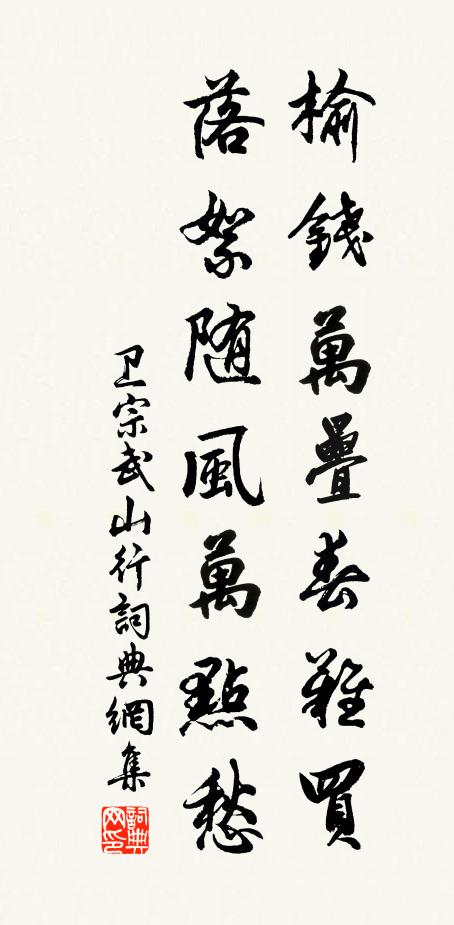 榆錢萬疊春難買
落絮随風萬點愁
卫宗武山行詞典網集
詞典网印